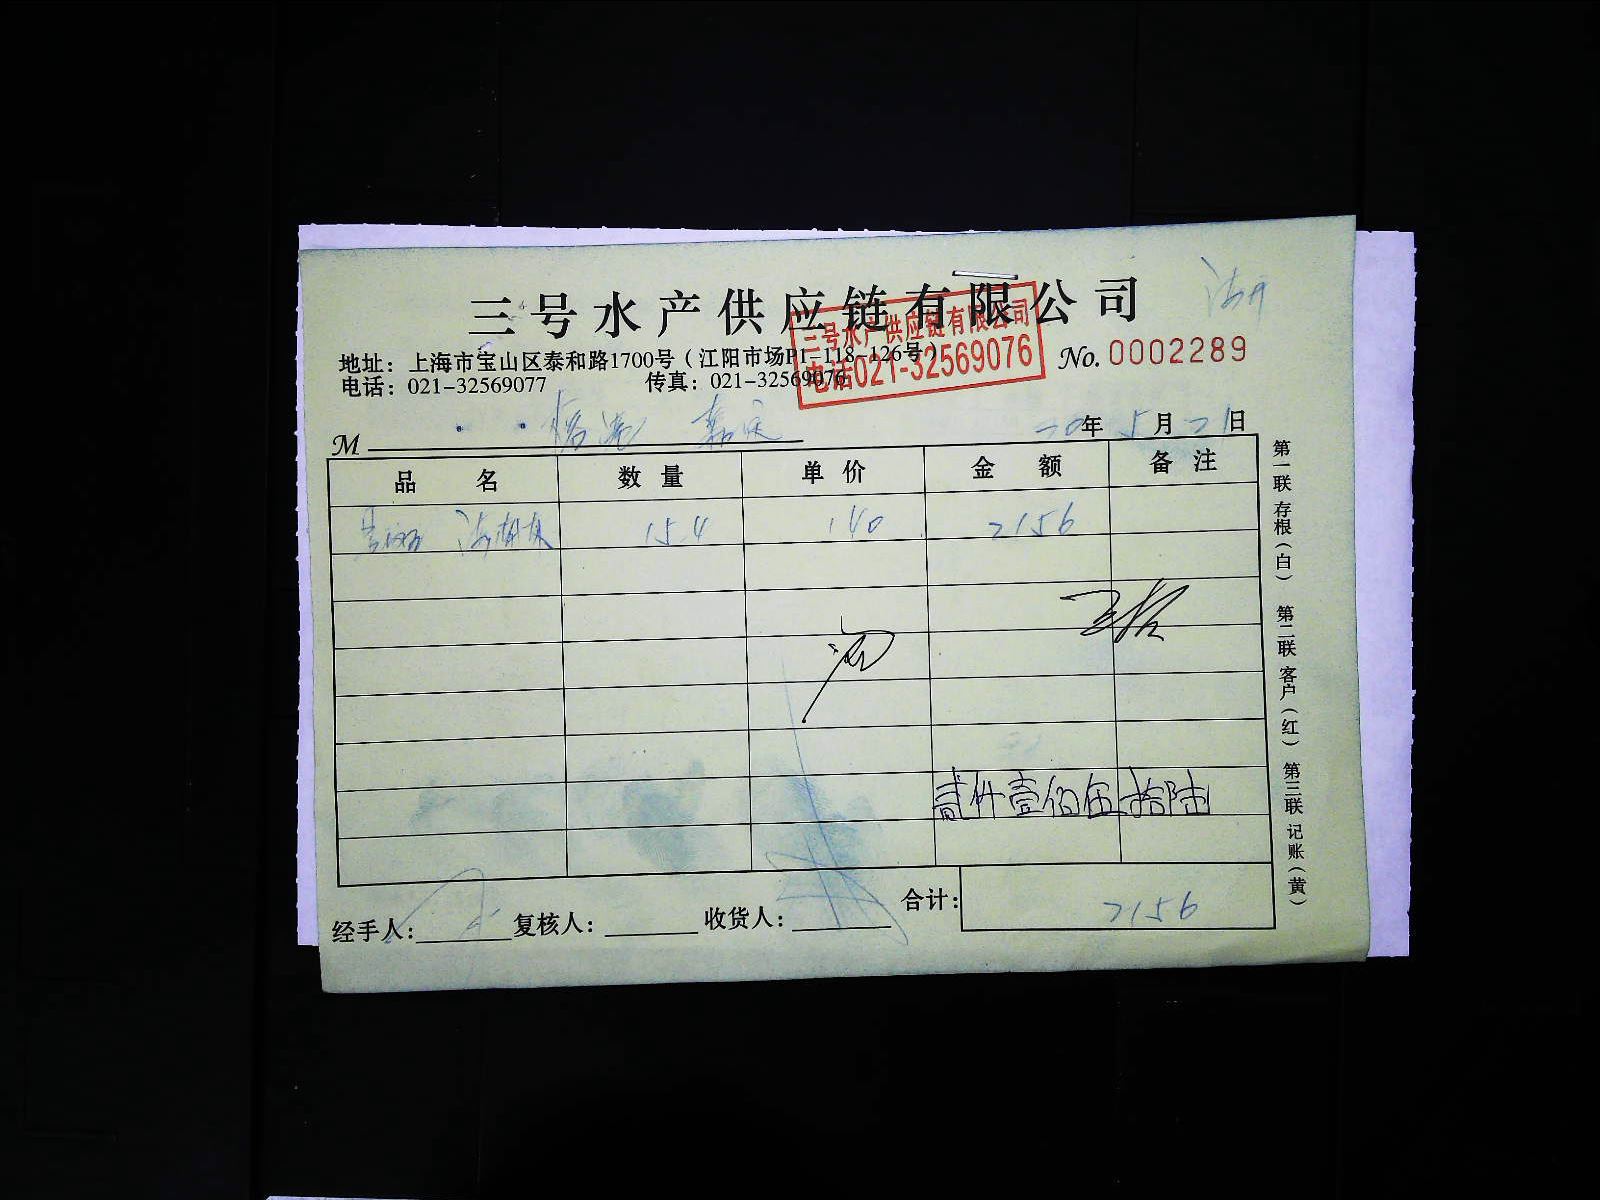 三号水产供应链有限公司
三号水产供应链有限公司
电话021-32569076
地址：上海市宝山区泰和路1700号（江阳市场P1-118-126号）
No. 0002289
电话：021-32569077 传真：021-32569076
M 嘉定
20年5月21日
品名 数量 单价 金额 备注
15.4 140 2156
贰仟壹佰伍拾陆
合计： 2156
经手人： 复核人： 收货人：
第一联 存根（白） 第二联 客户（红） 第三联 记账（黄）